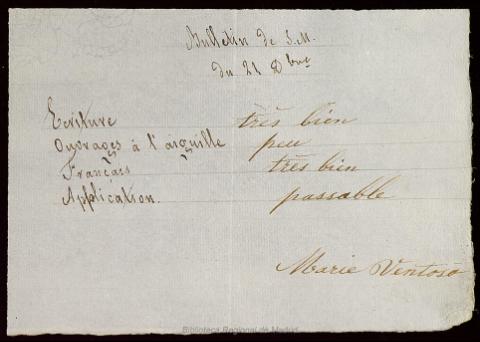 Bulletin de S.M.
du 21 Dbre
Ecriture très bien
Ouvrages à l'aiguille peu
Français très bien
Application. passable
Marie Ventosa
Biblioteca Regional de Madrid